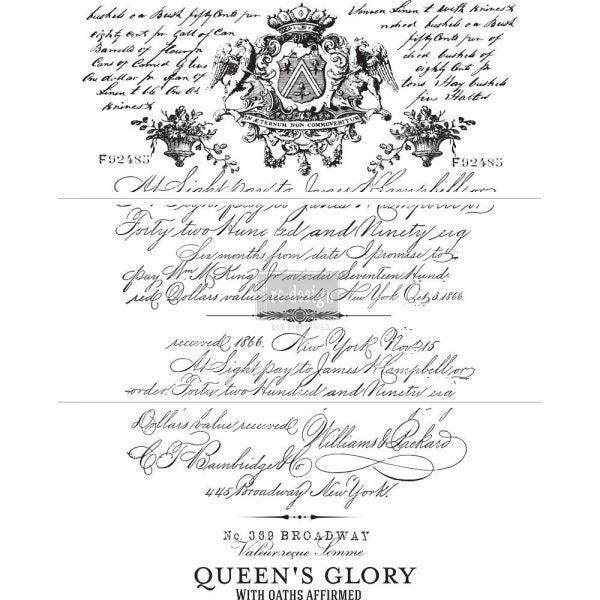 bushels oa Bush fifty Cents per
eighty Cent pr Gall of Can
Barrells of flour pr
Cans of Corned G lens
One dollar pr of
Linen t bb On Ols
Knines &
Vannen Linen t with Knines &
ndred bushels oa
fifty Cents pr
dred bushels of
eighty Cent pr
tons Hay bushels
fine
IN ETERNUM NON COMMOVEBITUR
F92485 F92485
At Sight Pay to James N Campbell or
At Sight pay to James N Campbell or
Forty two Hundred and Ninety eig
Six months from date I promise to
pay Wm M King Jr or order Seventeen Hund-
red Dollars value received New York Oct 3. 1866.
re-design
DIY SIMPLIFIED
received 1866. New York Nov 15
At Sight pay to James N Campbell or
order. Forty two Hundred and Ninety eig
Dollars value received Williams & Packard
C. T. Bainbridge & Co
445, Broadway New York.
No. 369 BROADWAY
Valeur reçue Somme
QUEEN'S GLORY
WITH OATHS AFFIRMED